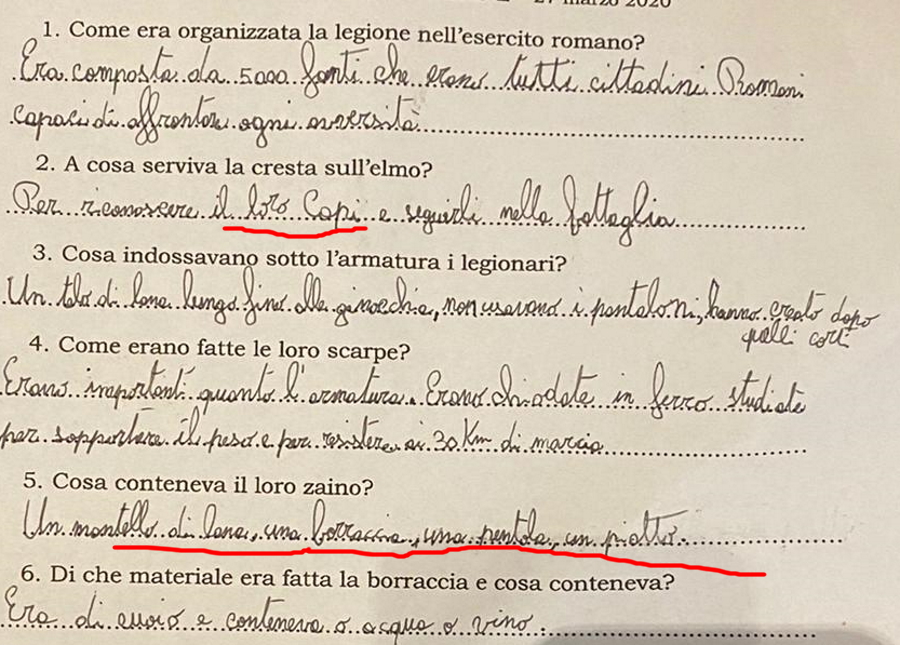 27 marzo 2020
1. Come era organizzata la legione nell'esercito romano?
Era composta da 5000 fanti che erano tutti cittadini Romani
capaci di affrontare ogni avversità
2. A cosa serviva la cresta sull'elmo?
Per riconoscere il loro Capi e seguirli nella battaglia
3. Cosa indossavano sotto l'armatura i legionari?
Un telo di lana lungo fino alle ginocchia, non usavano i pantaloni, hanno creato dopo
quelli corti
4. Come erano fatte le loro scarpe?
Erano importanti quanto l'armatura. Erano chiodate in ferro studiate
per sopportare il peso e per resistere ai 30 Km di marcia
5. Cosa conteneva il loro zaino?
Un mantello di lana, una borraccia, una pentola, un piatto.
6. Di che materiale era fatta la borraccia e cosa conteneva?
Era di cuoio e conteneva o acqua o vino.